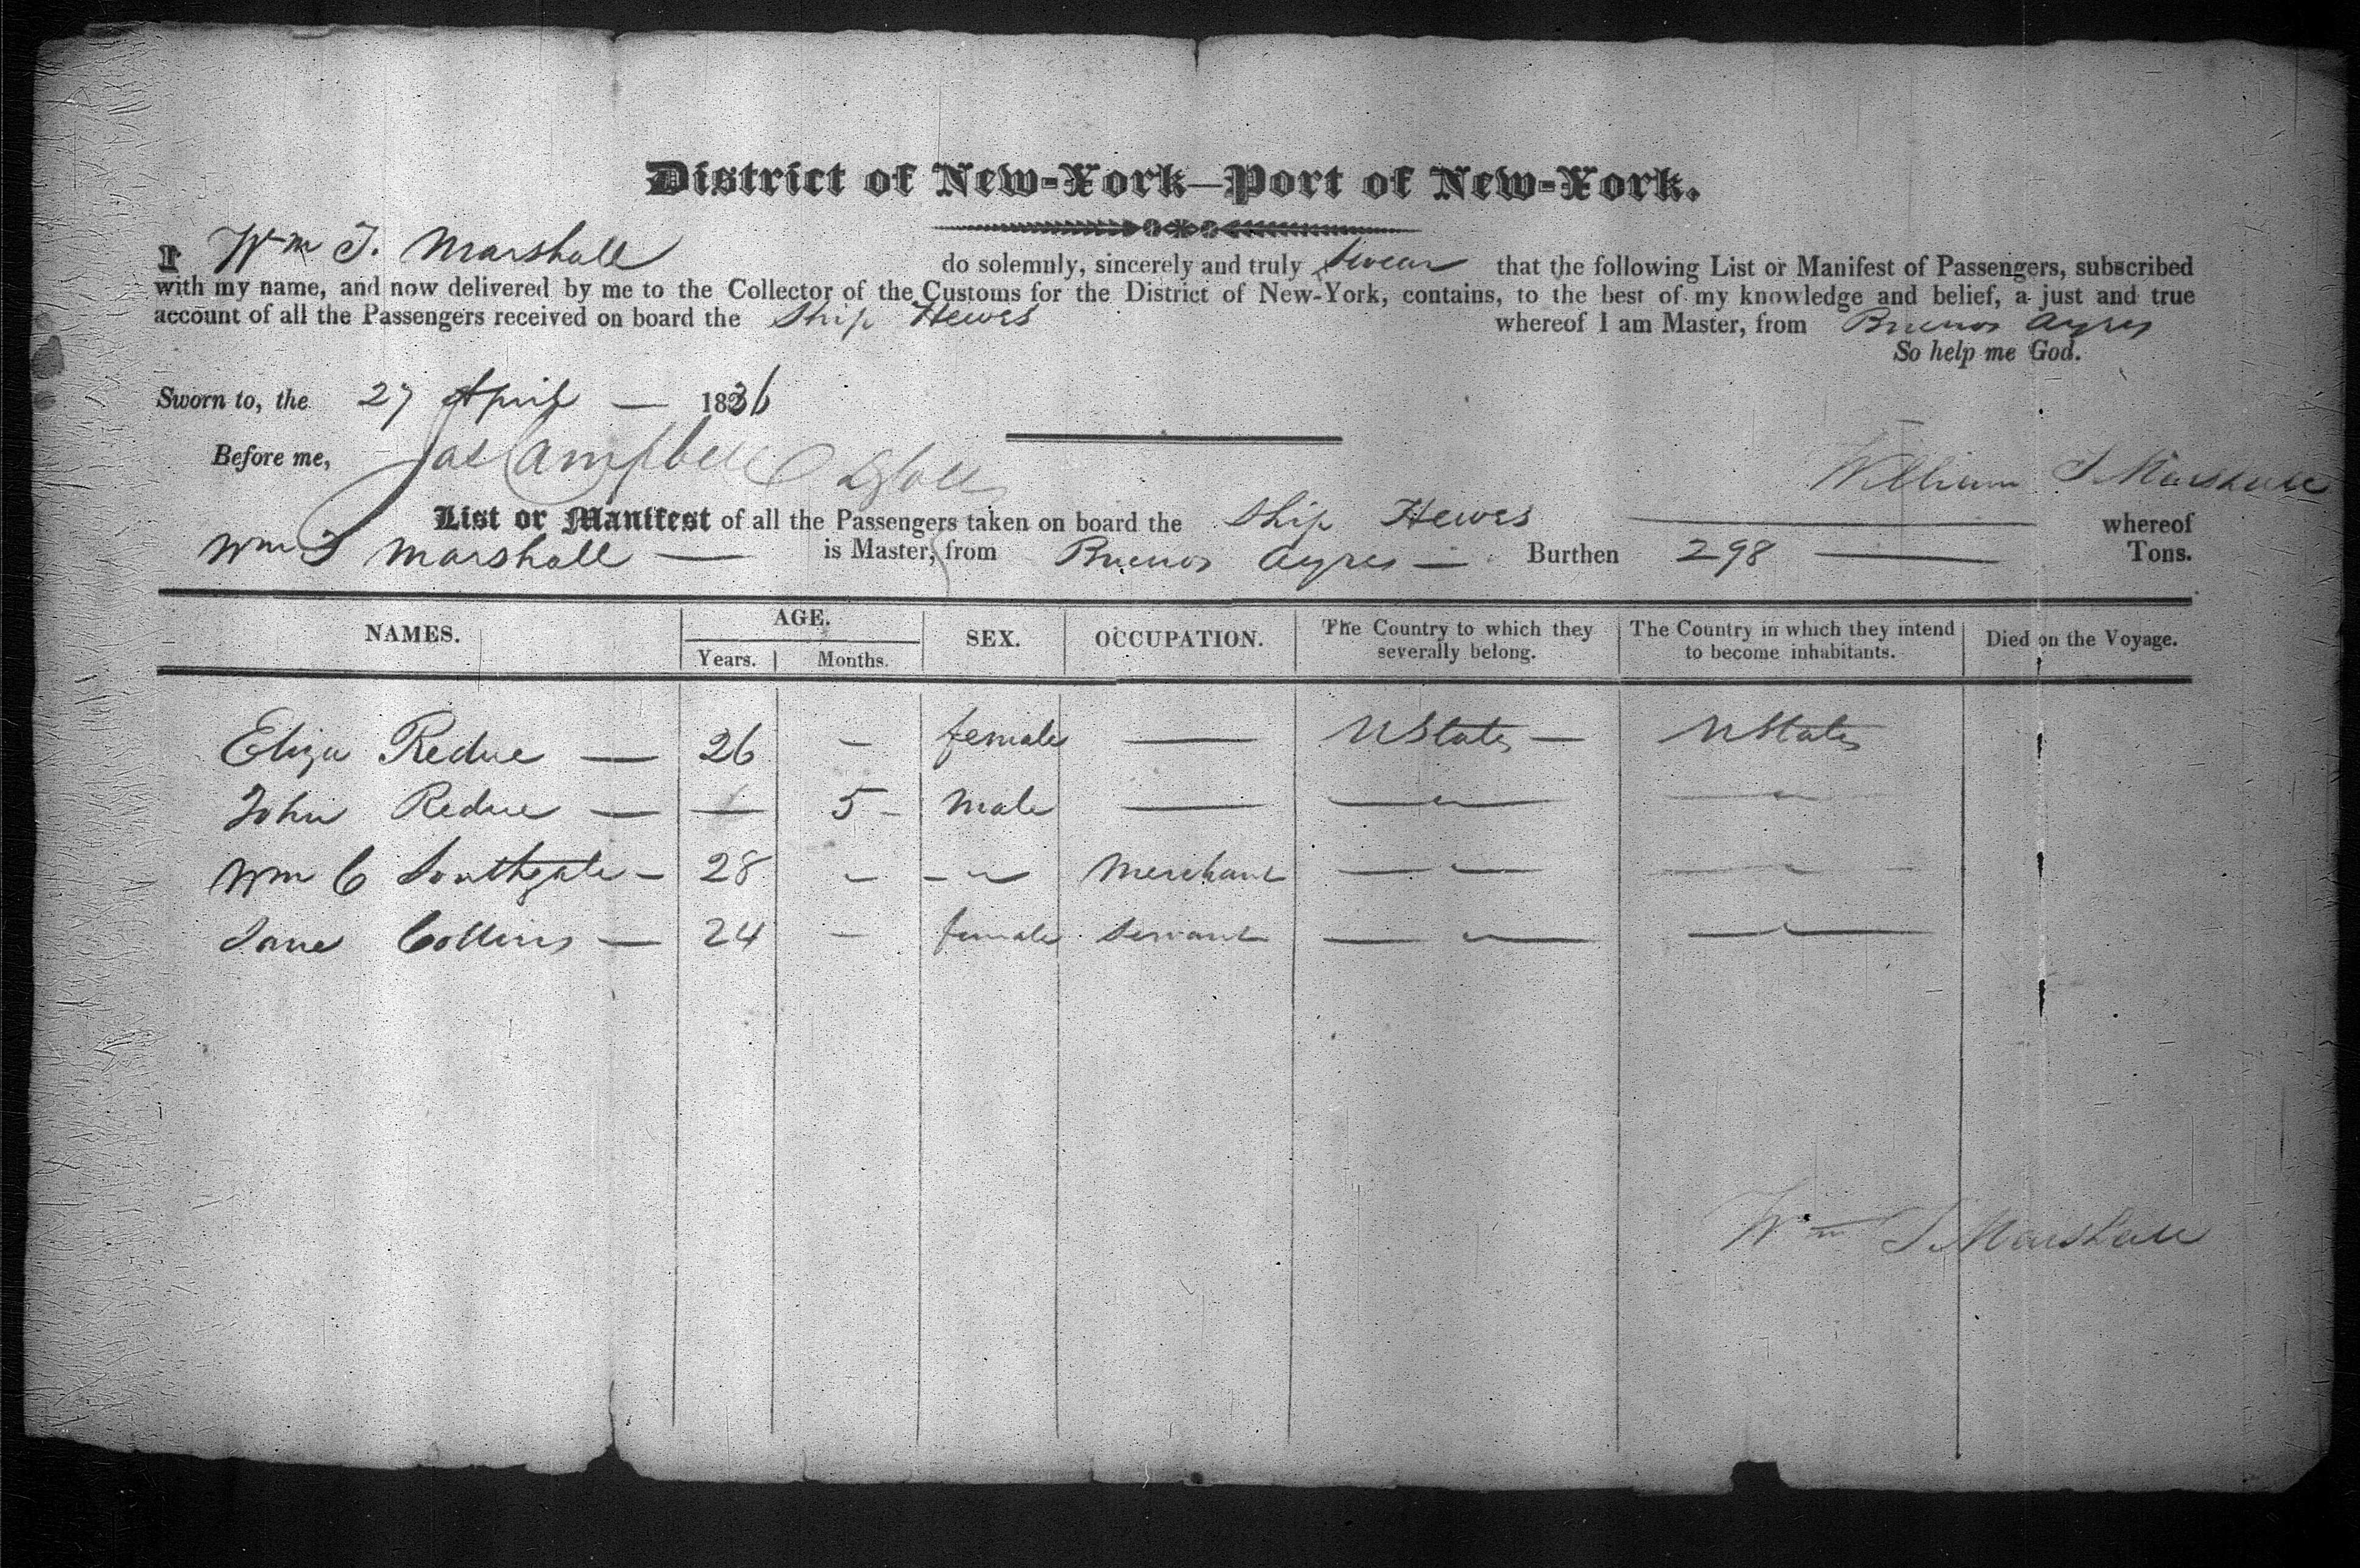 District of New-York—Port of New-York.
I Wm T. Marshall do solemnly, sincerely and truly swear that the following List or Manifest of Passengers, subscribed
with my name, and now delivered by me to the Collector of the Customs for the District of New-York, contains, to the best of my knowledge and belief, a just and true
account of all the Passengers received on board the Ship Hewes whereof I am Master, from Buenos Ayres
So help me God.
Sworn to, the 27 April — 1836
Before me, Jas Campbell
William T Marshall
List or Manifest of all the Passengers taken on board the Ship Hewes — whereof
Wm T Marshall — is Master, from Buenos Ayres — Burthen 298 — Tons.
NAMES. AGE. SEX. OCCUPATION. The Country to which they severally belong. The Country in which they intend to become inhabitants. Died on the Voyage.
Years. Months.
Eliza Redue — 26 - female — U States — U States
John Redue — — 5 - Male — — " — — " —
Wm C Southgate - 28 - - " - Merchant — " — — " —
Jane Collins — 24 - female Servant — " — — " —
Wm T Marshall